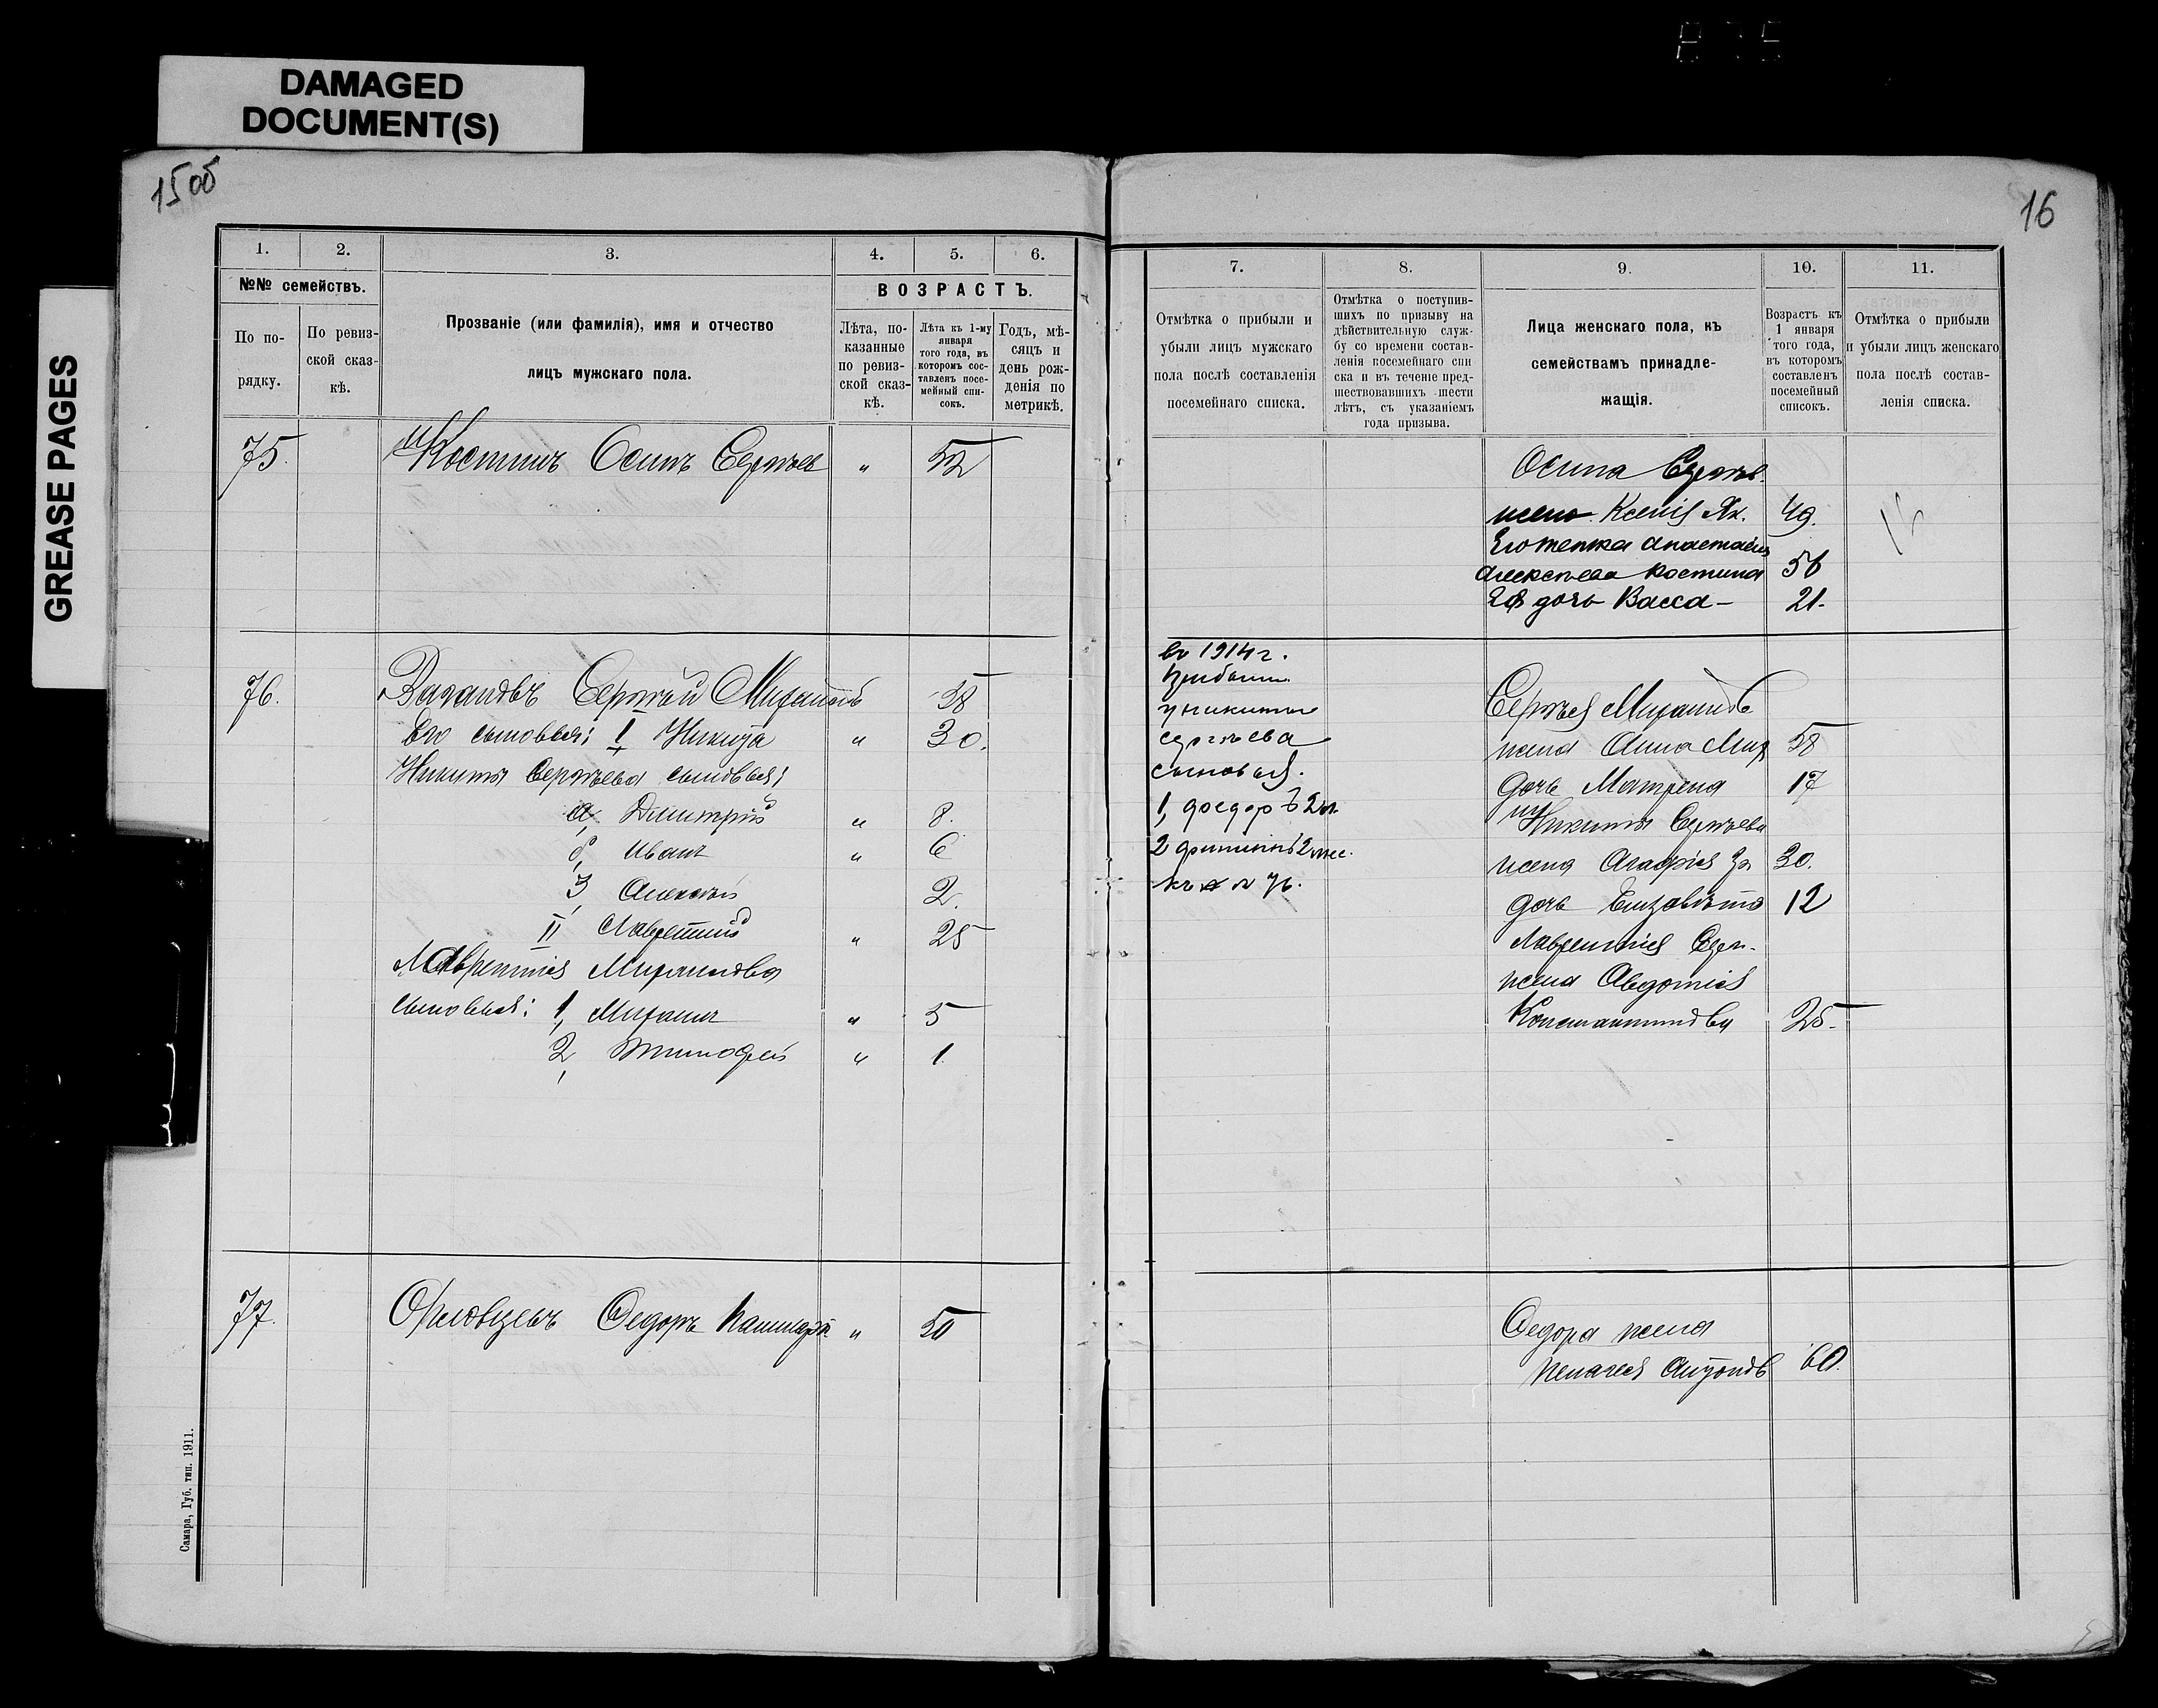 DAMAGED
DOCUMENT(S)
GREASE PAGES
15 об
16
1. 2. 3. 4. 5. 6.
№№ семействъ.
По по-
рядку.
По ревиз-
ской сказ-
кѣ.
Прозваніе (или фамилія), имя и отчество
лицъ мужскаго пола.
ВОЗРАСТЪ.
Лѣта, по-
казанные
по ревиз-
ской сказ-
кѣ.
Лѣта къ 1-му
января
того года, въ
которомъ сос-
тавленъ посе-
мейный спи-
сокъ.
Годъ, мѣ-
сяцъ и
день рож-
денія по
метрикѣ.
75. Костинъ Осипъ Сергѣев " 52
76. Сергѣй 58
Его сыновья: I Никита " 30.
Никиты Сергѣева сыновья:
а, Димитрій " 8.
б, Иванъ " 6
3, Алексѣй 2.
II Лаврентій " 25
Лаврентія
сыновья: 1, Михаилъ " 5
2, Тимофей " 1.
77. Федоръ " 50
Самара, Губ. тип. 1911.
7. 8. 9. 10. 11.
Отмѣтка о прибыли и
убыли лицъ мужскаго
пола послѣ составленія
посемейнаго списка.
Отмѣтка о поступив-
шихъ по призыву на
дѣйствительную служ-
бу со времени состав-
ленія посемейнаго спи
ска и въ теченіе пред-
шествовавшихъ шести
лѣтъ, съ указаніемъ
года призыва.
Лица женскаго пола, къ
семействамъ принадле-
жащія.
Возрастъ къ
1 января
того года,
въ которомъ
составленъ
посемейный
списокъ.
Отмѣтка о прибыли
и убыли лицъ женскаго
пола послѣ состав-
ленія списка.
Осипа Сергѣев.
жена Ксенія Як. 49.
Его тетка Анастасія
Алексѣева Костина 56
Ея дочь Васса - 21.
въ 1914 г.
прибыли
у Никиты
Сергѣева
сыновья.
1, Федоръ 2 л.
2 Филипъ 2 мес.
къ № 76.
Сергѣя
жена Анна 58
дочь Матрена 17
Никиты Сергѣева
жена Агафія 30.
дочь Елизавѣта 12
Лаврентія Серг.
жена Авдотія
Константинова 25.
Федора жена
Пелагея Антонов 60.